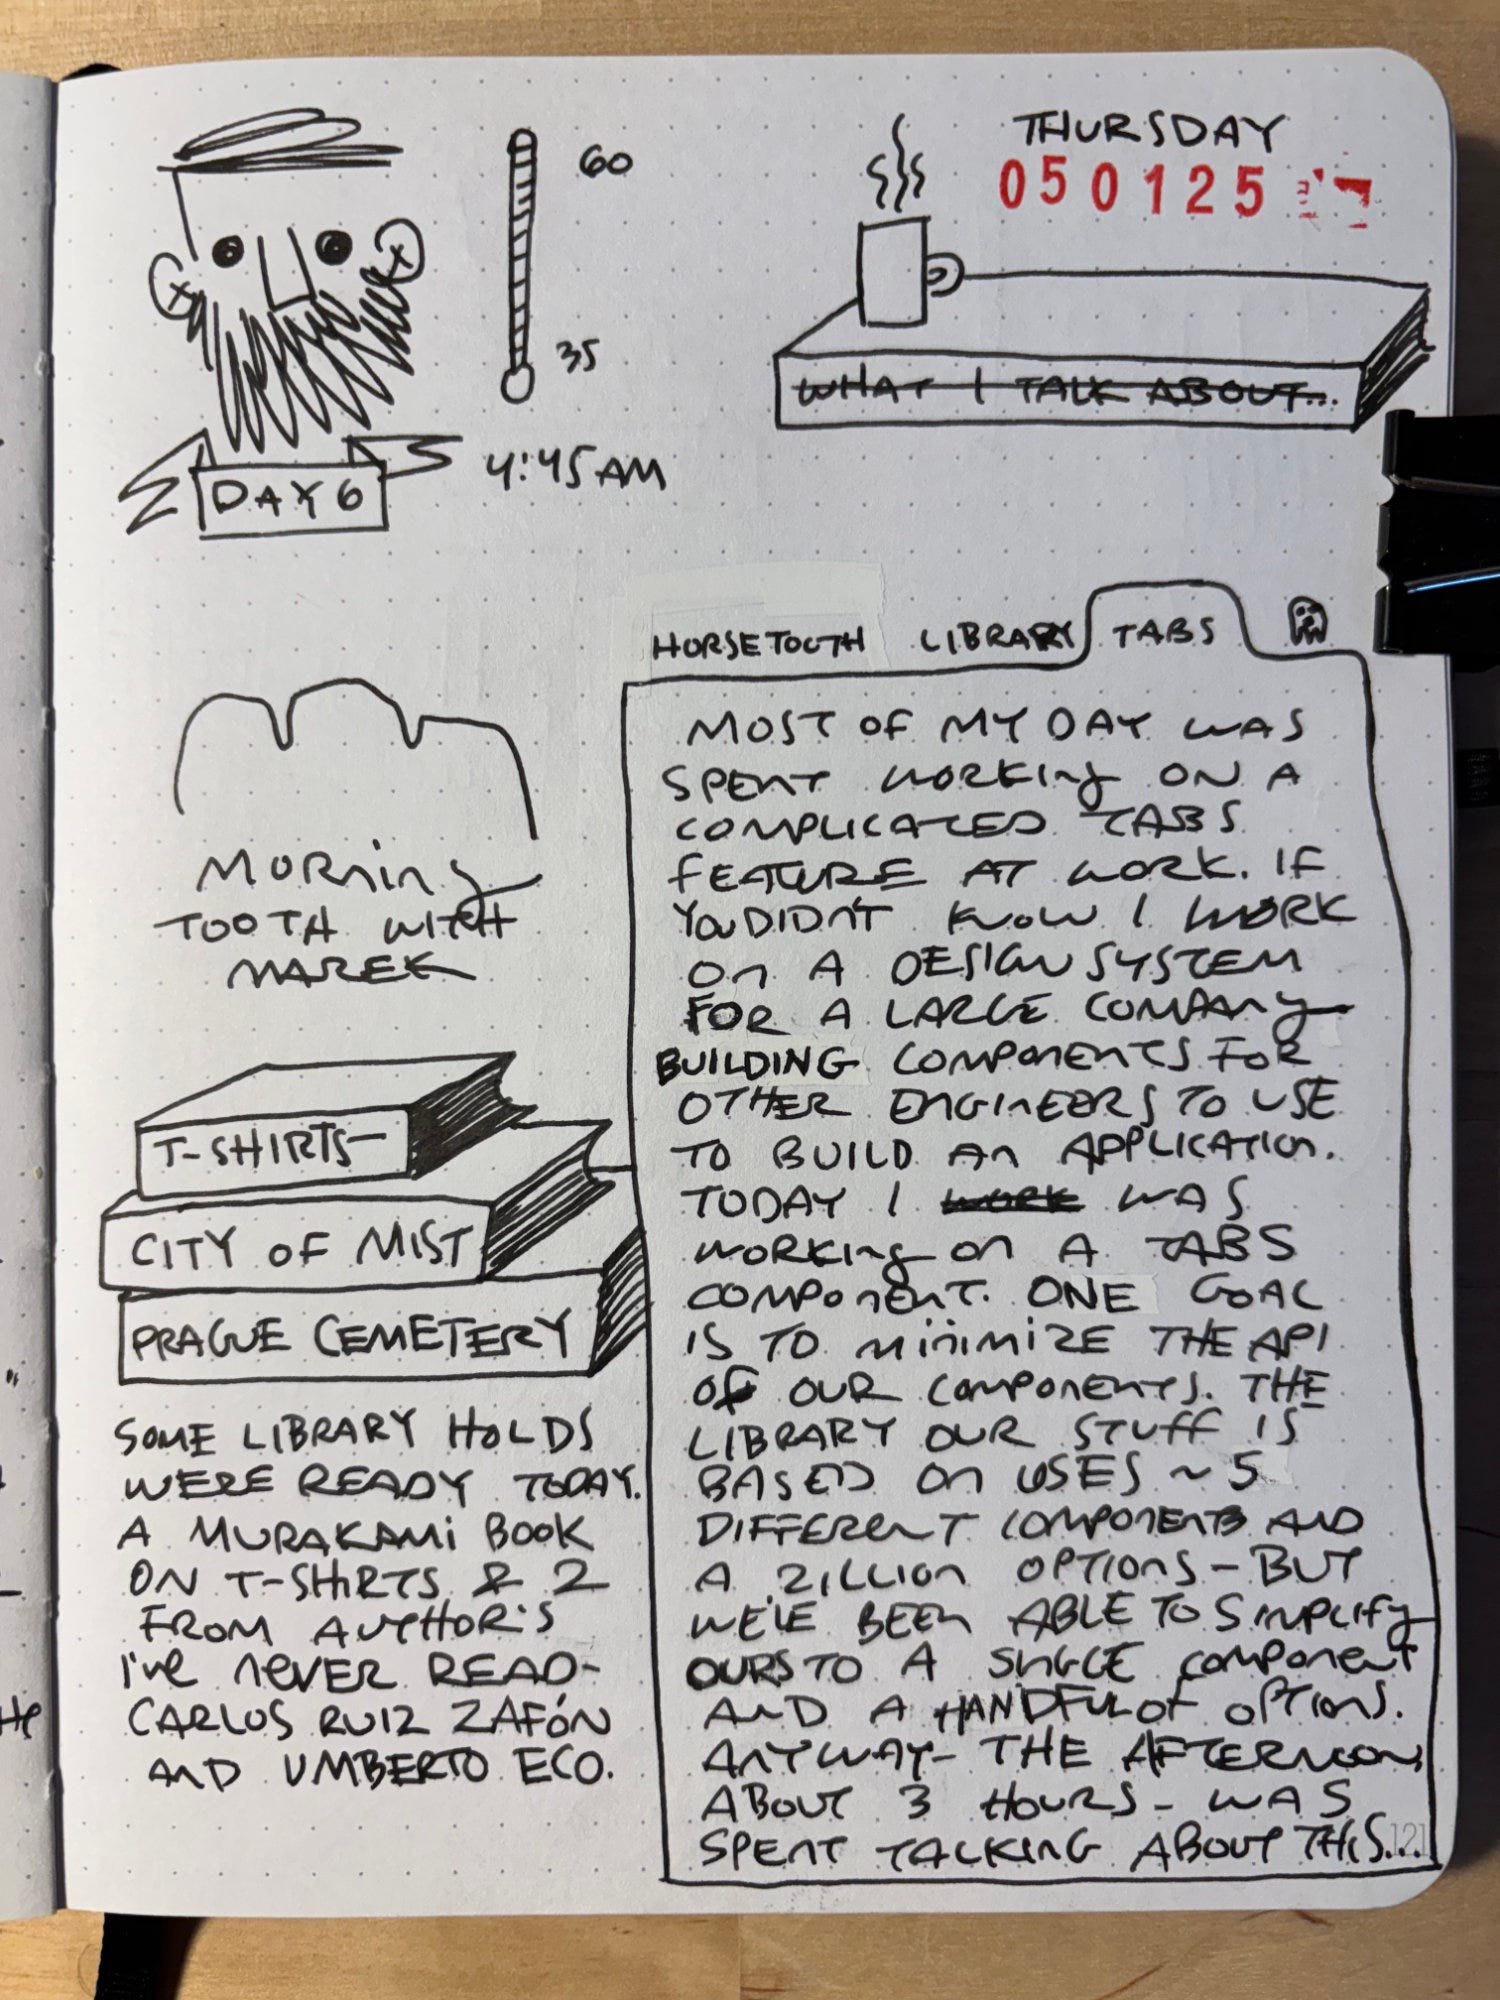 THURSDAY
050125
60
35
4:45AM
DAY 6
WHAT I TALK ABOUT...
MORning
TOOTH WITH
MAREK
T-SHIRTS
CITY OF MIST
PRAGUE CEMETERY
SOME LIBRARY HOLDS
WERE READY TODAY.
A MURAKAMI BOOK
ON T-SHIRTS & 2
FROM AUTHOR'S
I've never READ-
CARLOS RUIZ ZAFÓN
AND UMBERTO ECO.
HORSETOOTH LIBRARY TABS
MOST OF MY DAY WAS
SPENT WORKING ON A
COMPLICATED TABS
FEATURE AT WORK. IF
YOU DIDN'T KNOW I WORK
On A DESIGN SYSTEM
FOR A LARGE COMPANY
BUILDING COMPONENTS FOR
OTHER ENGINEERS TO USE
TO BUILD An APPLICATION.
TODAY I WORK WAS
WORKING On A TABS
COMPONENT. ONE GOAL
IS TO MINIMIZE THE API
OF OUR COMPONENTS. THE
LIBRARY OUR STUFF IS
BASED ON USES ~5
DIFFERENT COMPONENTS AND
A ZILLION OPTIONS - BUT
WE'VE BEEN ABLE TO SIMPLIFY
OURS TO A SINGLE COMPONENT
AND A HANDFUL OF OPTIONS.
ANYWAY- THE AFTERNOON,
ABOUT 3 HOURS- WAS
SPENT TALKING ABOUT THIS...
121